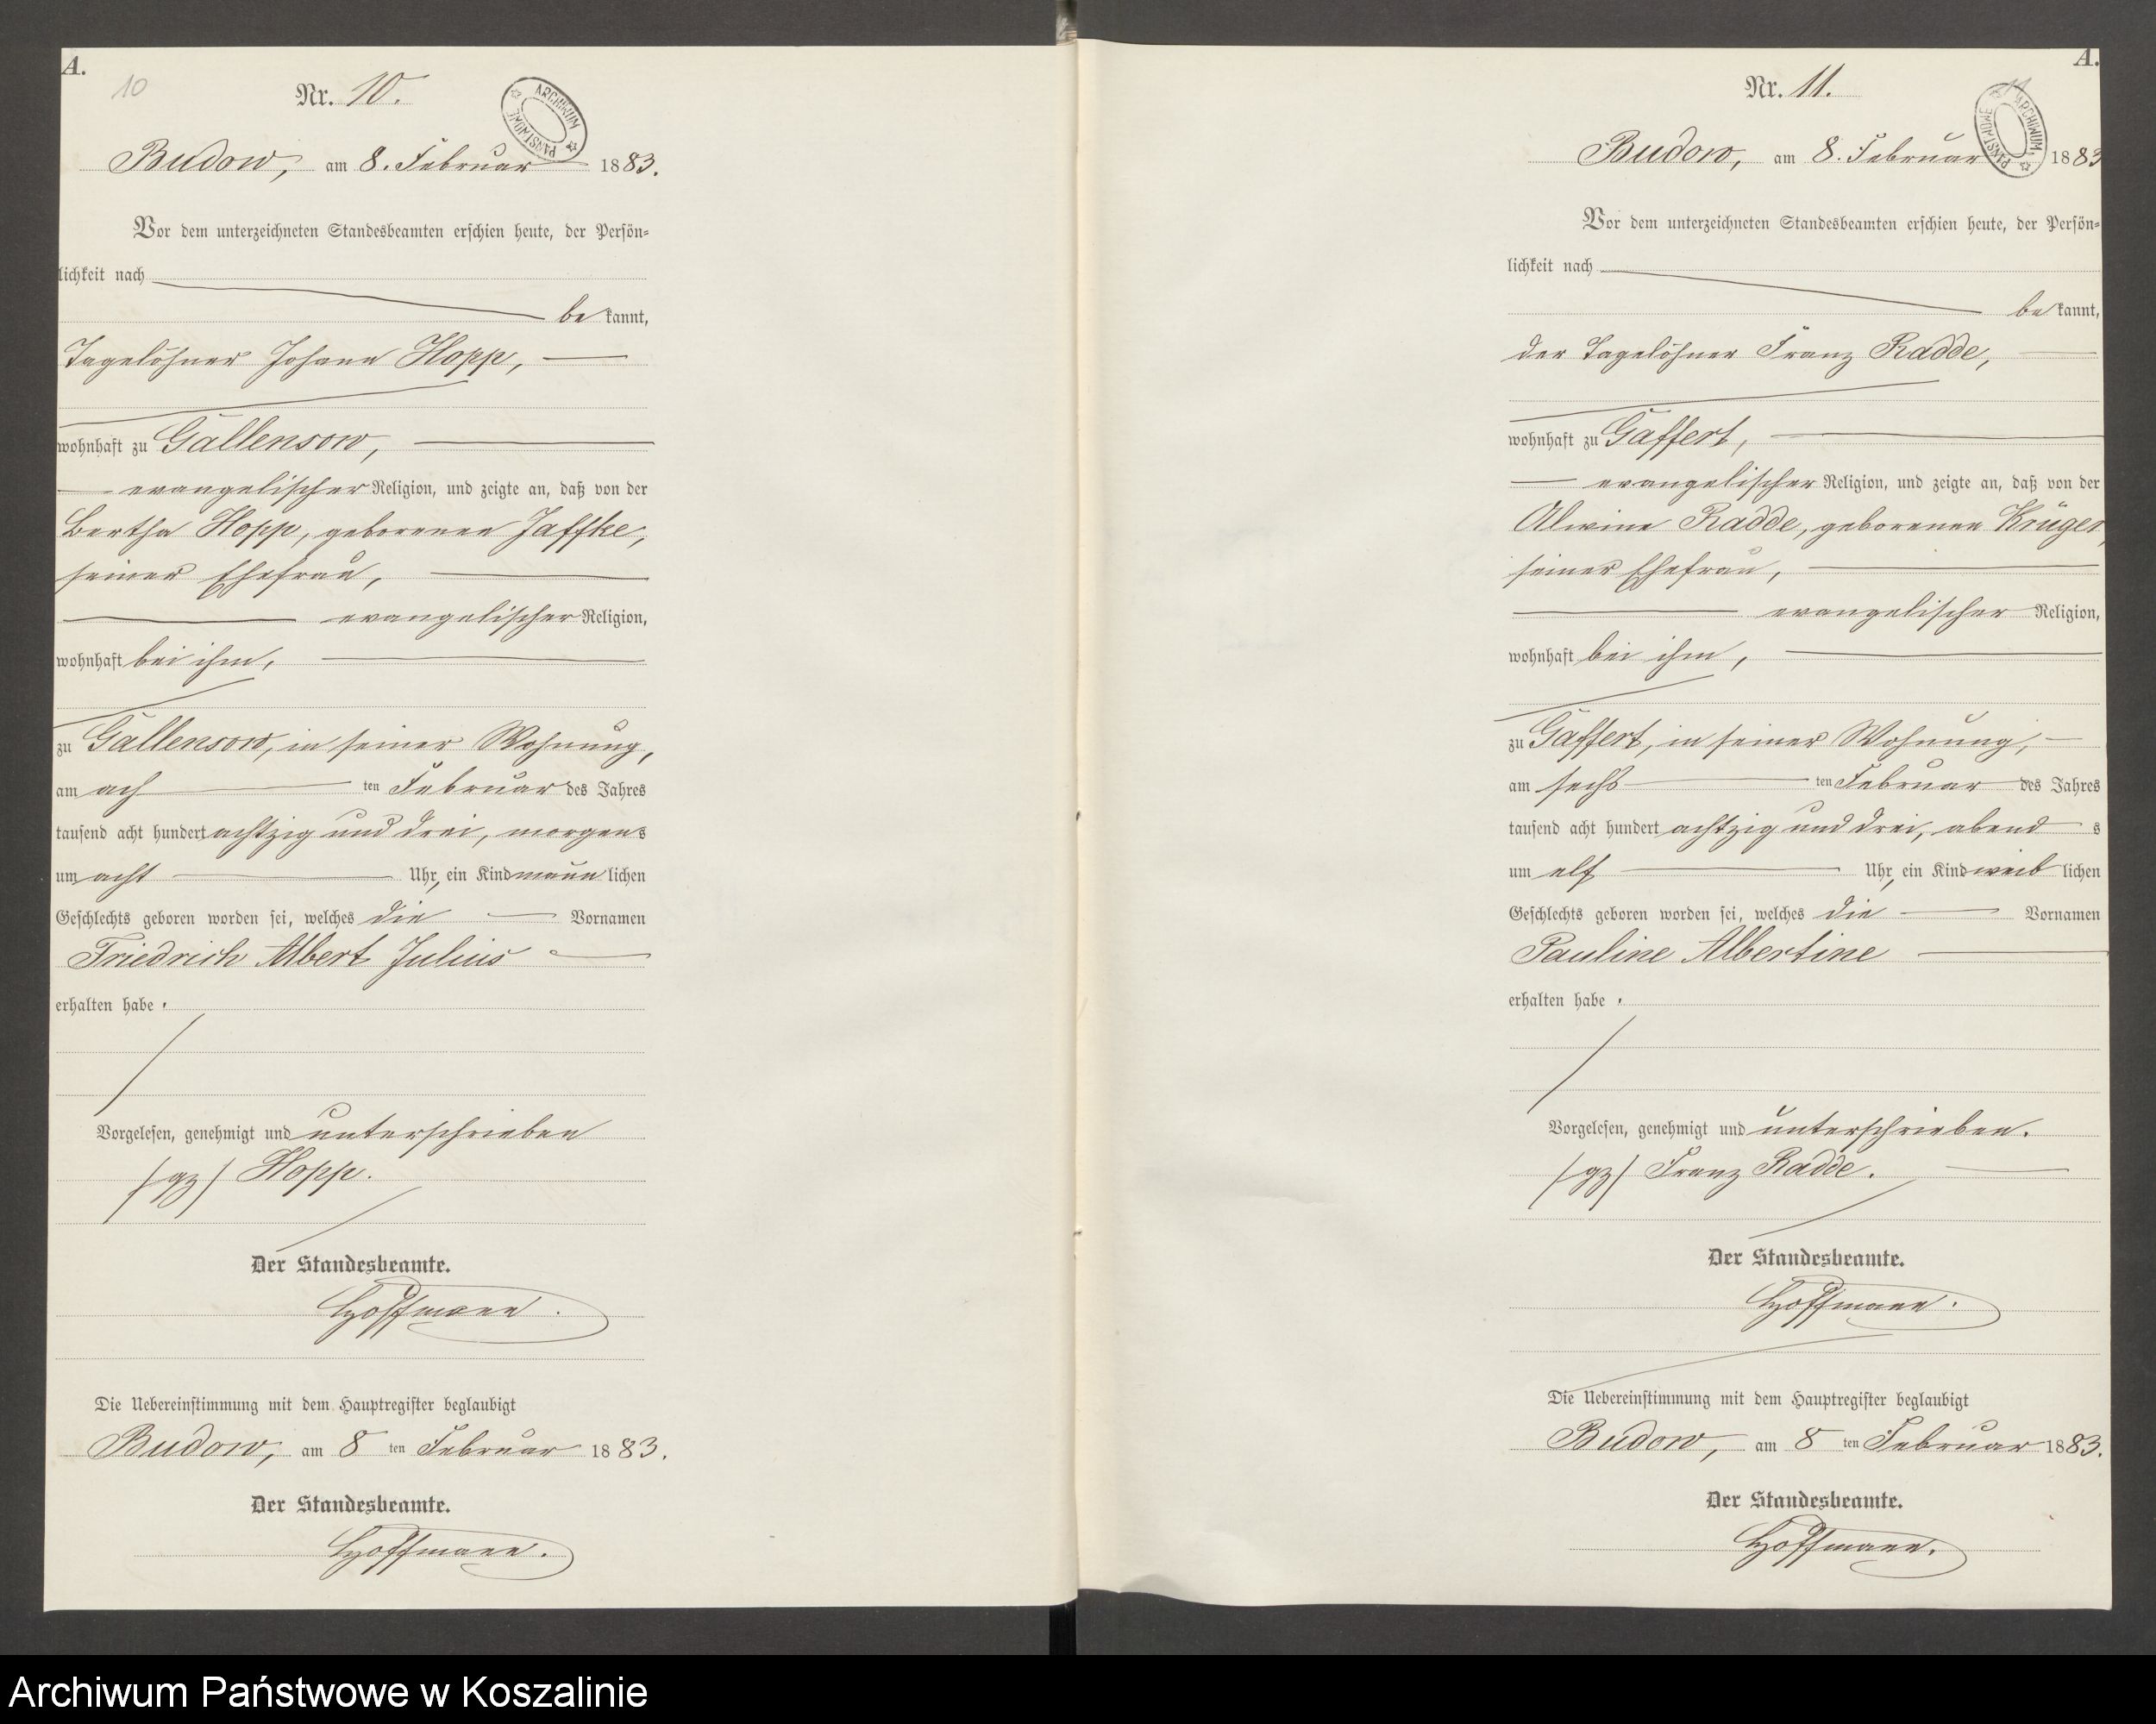 A.
10
Nr. 10.
ARCHIWUM PAŃSTWOWE
Budow, am 8. Februar 1883.
Vor dem unterzeichneten Standesbeamten erschien heute, der Persön-
lichkeit nach
be kannt,
Tagelöhner Johann Hopp,
wohnhaft zu Gallensow,
evangelischer Religion, und zeigte an, daß von der
Bertha Hopp, geborenen Jaffke,
seiner Ehefrau,
evangelischer Religion,
wohnhaft bei ihm,
zu Gallensow, in seiner Wohnung,
am ach ten Februar des Jahres
tausend acht hundert achtzig und drei, morgens
um acht Uhr, ein Kind männlichen
Geschlechts geboren worden sei, welches die Vornamen
Friedrich Albert Julius
erhalten habe.
Vorgelesen, genehmigt und unterschrieben
(gz) Hopp.
Der Standesbeamte.
Hoffmann.
Die Uebereinstimmung mit dem Hauptregister beglaubigt
Budow, am 8 ten Februar 1883.
Der Standesbeamte.
Hoffmann.
A.
11
Nr. 11.
ARCHIWUM PAŃSTWOWE
Budow, am 8. Februar 1883
Vor dem unterzeichneten Standesbeamten erschien heute, der Persön-
lichkeit nach
be kannt,
der Tagelöhner Franz Radde,
wohnhaft zu Gaffert,
evangelischer Religion, und zeigte an, daß von der
Alwine Radde, geborenen Krüger,
seiner Ehefrau,
evangelischer Religion,
wohnhaft bei ihm,
zu Gaffert, in seiner Wohnung,
am sechs ten Februar des Jahres
tausend acht hundert achtzig und drei, abend s
um elf Uhr, ein Kind weib lichen
Geschlechts geboren worden sei, welches die Vornamen
Pauline Albertine
erhalten habe.
Vorgelesen, genehmigt und unterschrieben.
(gz) Franz Radde.
Der Standesbeamte.
Hoffmann.
Die Uebereinstimmung mit dem Hauptregister beglaubigt
Budow, am 8 ten Februar 1883.
Der Standesbeamte.
Hoffmann.
Archiwum Państwowe w Koszalinie